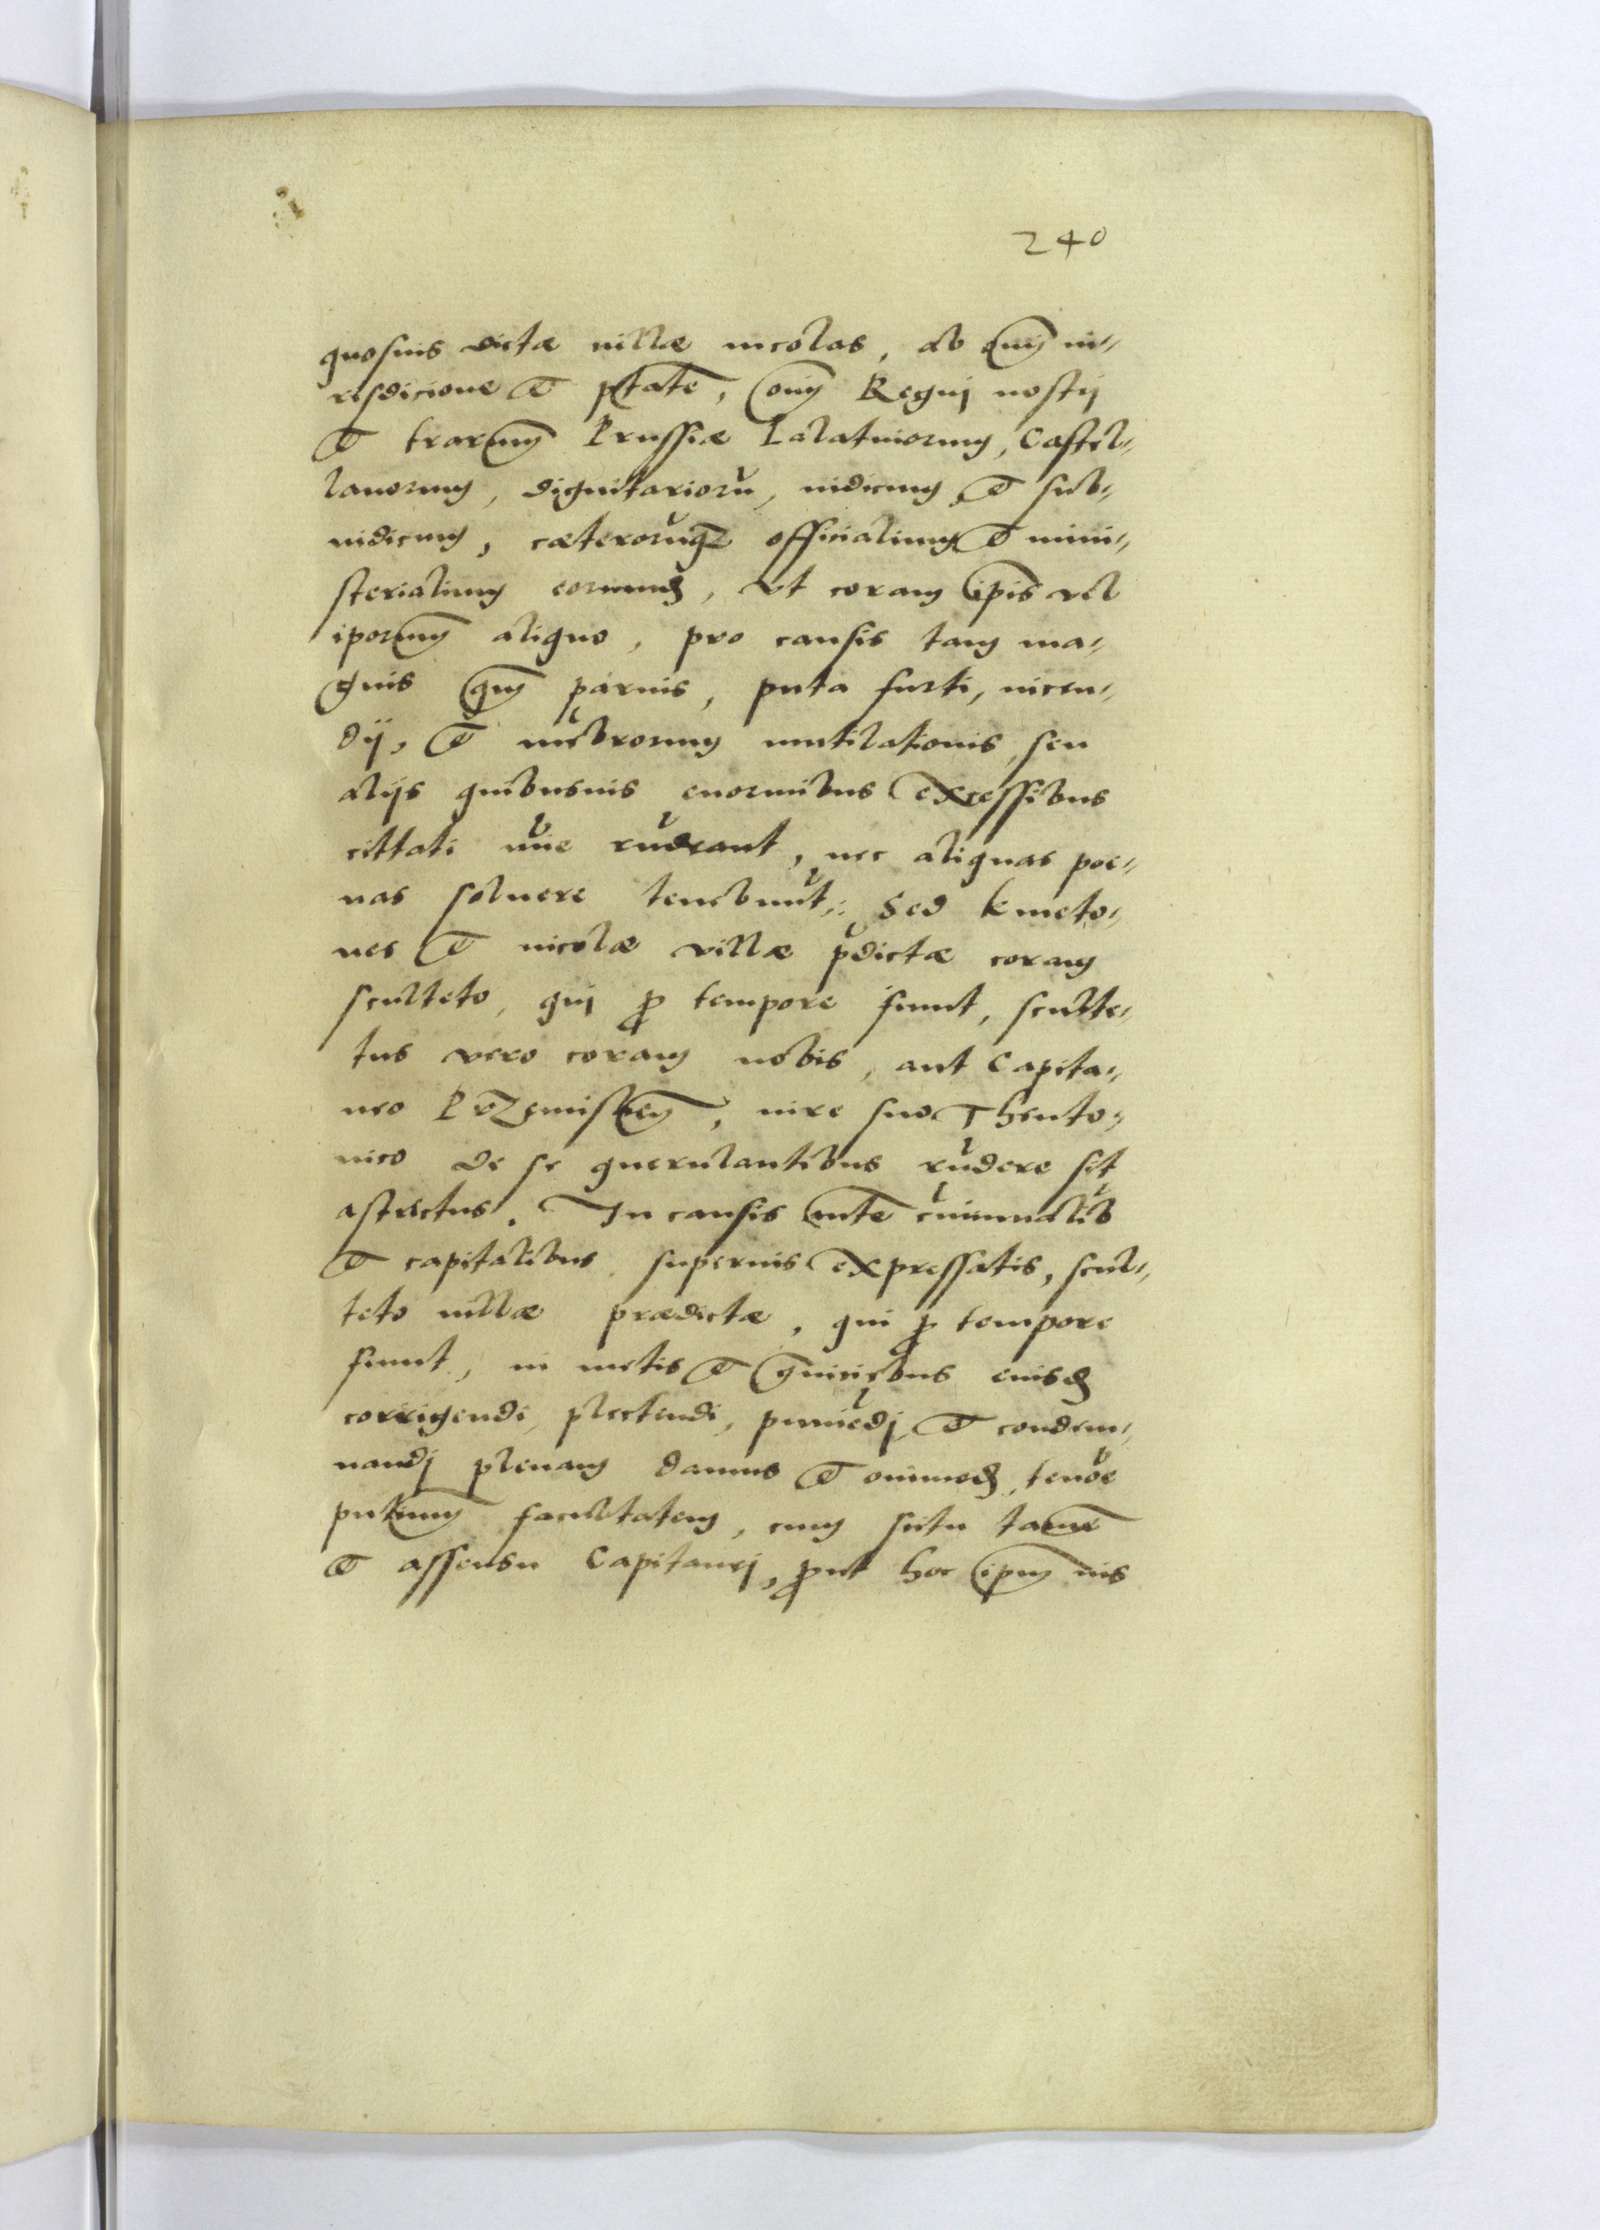 240
quosuis dictæ uillæ incolas, ab oīm iu-
risdicione et ptāte, oīm Regni nostrj
et trarum Prussiæ Palatinorum, Castel-
lanorum, dignitariorū, iudicum et sub-
iudicum, cæterorūqz officialium et mini-
sterialium eorumd, vt coram ipīs vel
ipōrum aliquo, pro causis tam ma-
gnis qm̄ paruis, puta furti, incen-
dij, et mēbrorum mutilationis, seu
alijs quibusuis enormibus excessibus
cittati mīe rn̄deant, nec aliquas poe-
nas soluere tenebunt̄: Sed kmeto-
nes et incolæ villæ p̄dictæ coram
sculteto, qui ꝓ tempore fuerit, sculte-
tus vero coram nobis, aut Capita-
neo, iure suo Theuto-
nico de se querulantibus rn̄dere sit
astrictus. In causis aūte crīminalib
et capitalibus superius expressatis, scul-
teto uillæ prædictæ, qui ꝓ tempore
fuerit, in metis et graniciebus eiusd
corrigendi, plectendi, puniēdj et condem-
nandj plenam damus et omnimod, tenōe
pn̄tium facultatem, cum scitu tamē
et assensu Capitanej, ꝓut hoc ipm̄ ius